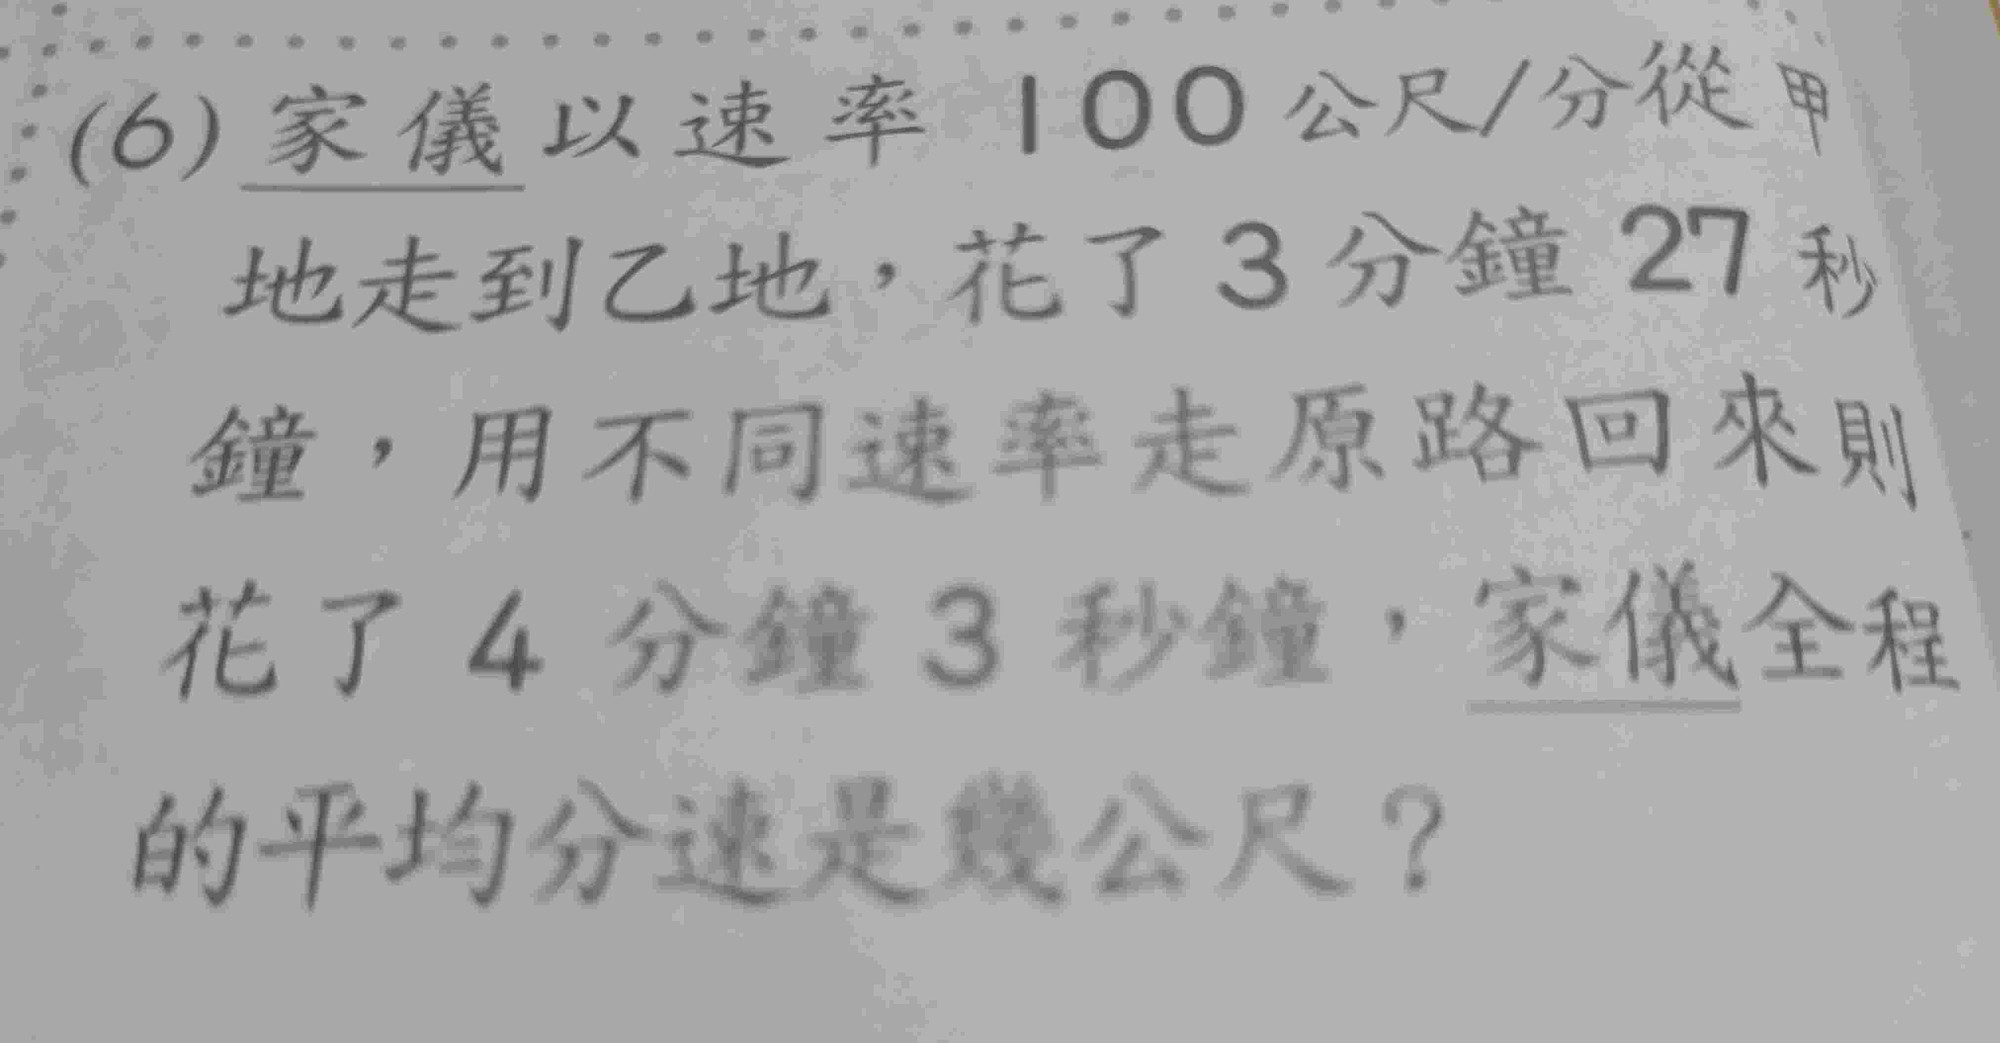 (6)家儀以速率100公尺/分從甲
地走到乙地，花了3分鐘27秒
鐘，用不同速率走原路回來則
花了4分鐘3秒鐘，家儀全程
的平均分速是幾公尺？